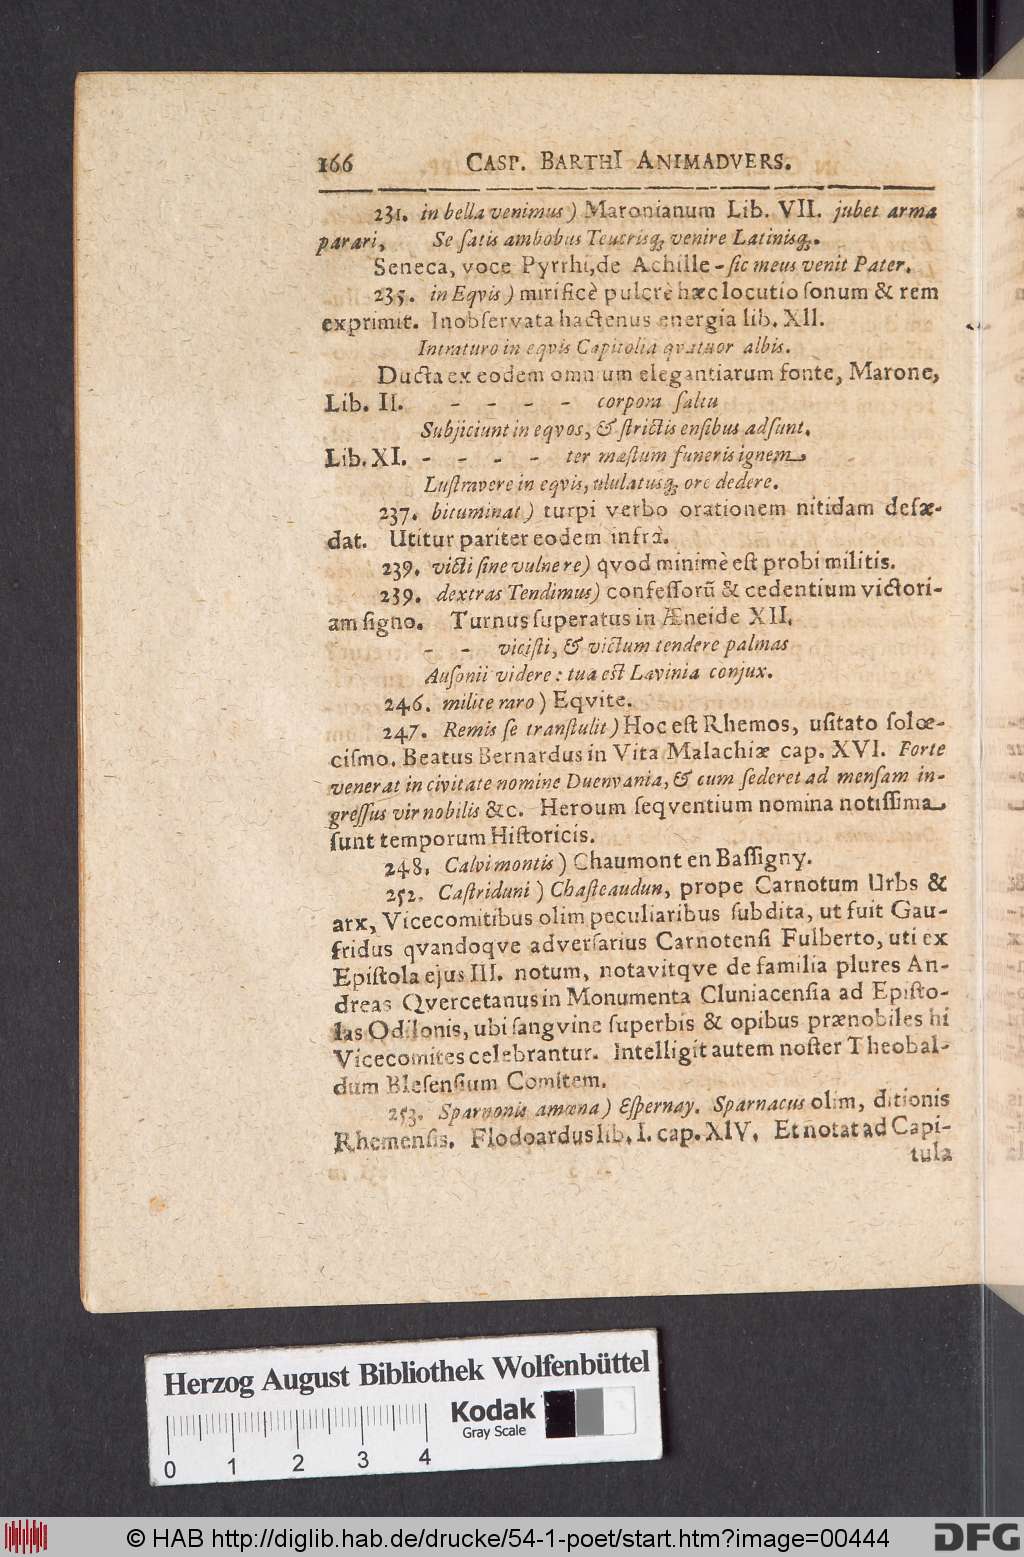 166 CASP. BARTHI ANIMADVERS.
231. in bella venimus) Maronianum Lib. VII. jubet arma
parari, Se satis ambobus Teucrisq; venire Latinisq;.
Seneca, voce Pyrrhi, de Achille - sic meus venit Pater.
235. in Eqvis) mirificè pulcrè hæc locutio sonum & rem
exprimit. Inobservata hactenus energia lib. XII.
Intraturo in eqvis Capitolia qvatuor albis.
Ducta ex eodem omnium elegantiarum fonte, Marone,
Lib. II. - - - - corpora saltu
Subjiciunt in eqvos, & strictis ensibus adsunt.
Lib. XI. - - - - ter mæstum funeris ignem
Lustravere in eqvis, ululatusq; ore dedere.
237. bituminat) turpi verbo orationem nitidam defæ-
dat. Utitur pariter eodem infrà.
239. victi sine vulnere) qvod minimè est probi militis.
239. dextras Tendimus) confessorũ & cedentium victori-
am signo. Turnus superatus in Æneide XII.
- - vicisti, & victum tendere palmas
Ausonii videre: tua est Lavinia conjux.
246. milite raro) Eqvite.
247. Remis se transtulit) Hoc est Rhemos, usitato solœ-
cismo. Beatus Bernardus in Vita Malachiæ cap. XVI. Forte
venerat in civitate nomine Duenvania, & cum sederet ad mensam in-
gressus vir nobilis &c. Heroum seqventium nomina notissima
sunt temporum Historicis.
248. Calvimontis) Chaumont en Bassigny.
252. Castriduni) Chasteaudun, prope Carnotum Urbs &
arx, Vicecomitibus olim peculiaribus subdita, ut fuit Gau-
fridus qvandoqve adversarius Carnotensi Fulberto, uti ex
Epistola ejus III. notum, notavitqve de familia plures An-
dreas Qvercetanus in Monumenta Cluniacensia ad Episto-
las Odilonis, ubi sangvine superbis & opibus prænobiles hi
Vicecomites celebrantur. Intelligit autem noster Theobal-
dum Blesensium Comitem.
253. Sparnonis amœna) Espernay. Sparnacus olim, ditionis
Rhemensis. Flodoardus lib. I. cap. XIV. Et notat ad Capi-
tula
Herzog August Bibliothek Wolfenbüttel
Kodak
Gray Scale
0 1 2 3 4
© HAB http://diglib.hab.de/drucke/54-1-poet/start.htm?image=00444
DFG